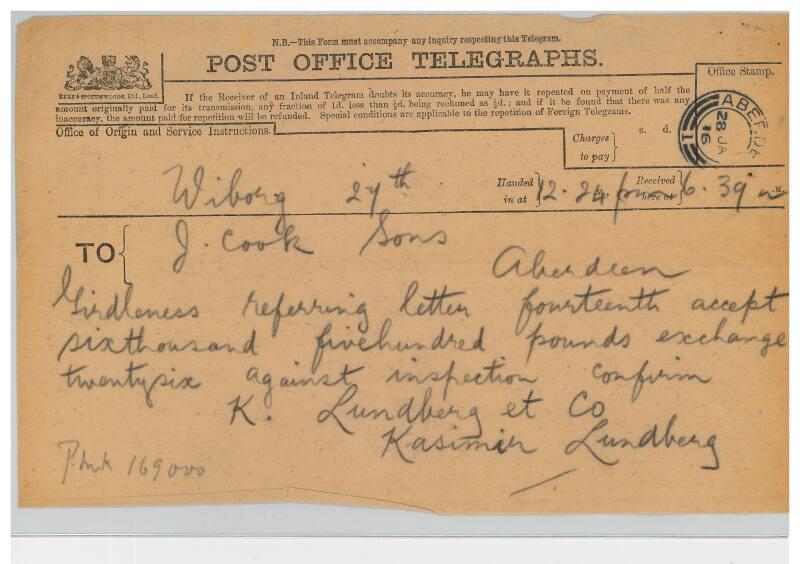 N.B.—This Form must accompany any inquiry respecting this Telegram.
POST OFFICE TELEGRAPHS.
EYRE & SPOTTISWOODE, Ltd., Lond.
If the Receiver of an Inland Telegram doubts its accuracy, he may have it repeated on payment of half the
amount originally paid for its transmission, any fraction of 1d. less than ½d. being reckoned as ½d.; and if it be found that there was any
inaccuracy, the amount paid for repetition will be refunded. Special conditions are applicable to the repetition of Foreign Telegrams.
Office Stamp.
ABERDE
28 JA
16
Office of Origin and Service Instructions.
Charges to pay
s. d.
Wiborg 27th
Handed in at 12.24 pm
Received here at 6.39
TO
J. Cook Sons
Aberdeen
Girdleness referring letter fourteenth accept
sixthousand fivehundred pounds exchange
twentysix against inspection confirm
K. Lundberg et Co
Kasimir Lundberg
169000